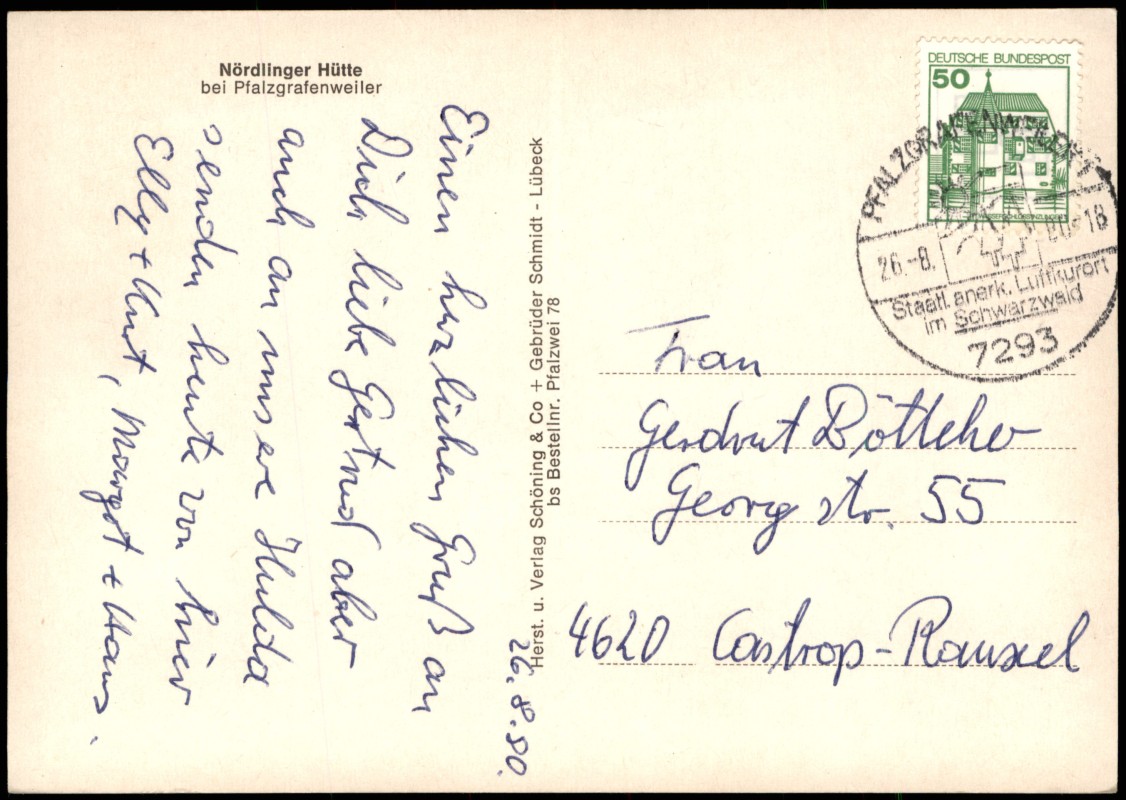 Nördlinger Hütte
bei Pfalzgrafenweiler
26.8.80.
Einen herzlichen Gruß an
Dich liebe Gertrud aber
auch an unsere Hulda
senden heute von hier
Elly + Kurt, Margot + Hans.
Herst. u. Verlag Schöning & Co + Gebrüder Schmidt - Lübeck
bs Bestellnr. Pfalzwei 78
DEUTSCHE BUNDESPOST
50
WASSERSCHLOSS INZLINGEN
PFALZGRAFENWEILER 1
26.-8. 80-18
Staatl. anerk. Luftkurort
im Schwarzwald
7293
Frau
Gerdrut Böttcher
Georg str. 55
4620 Castrop-Rauxel